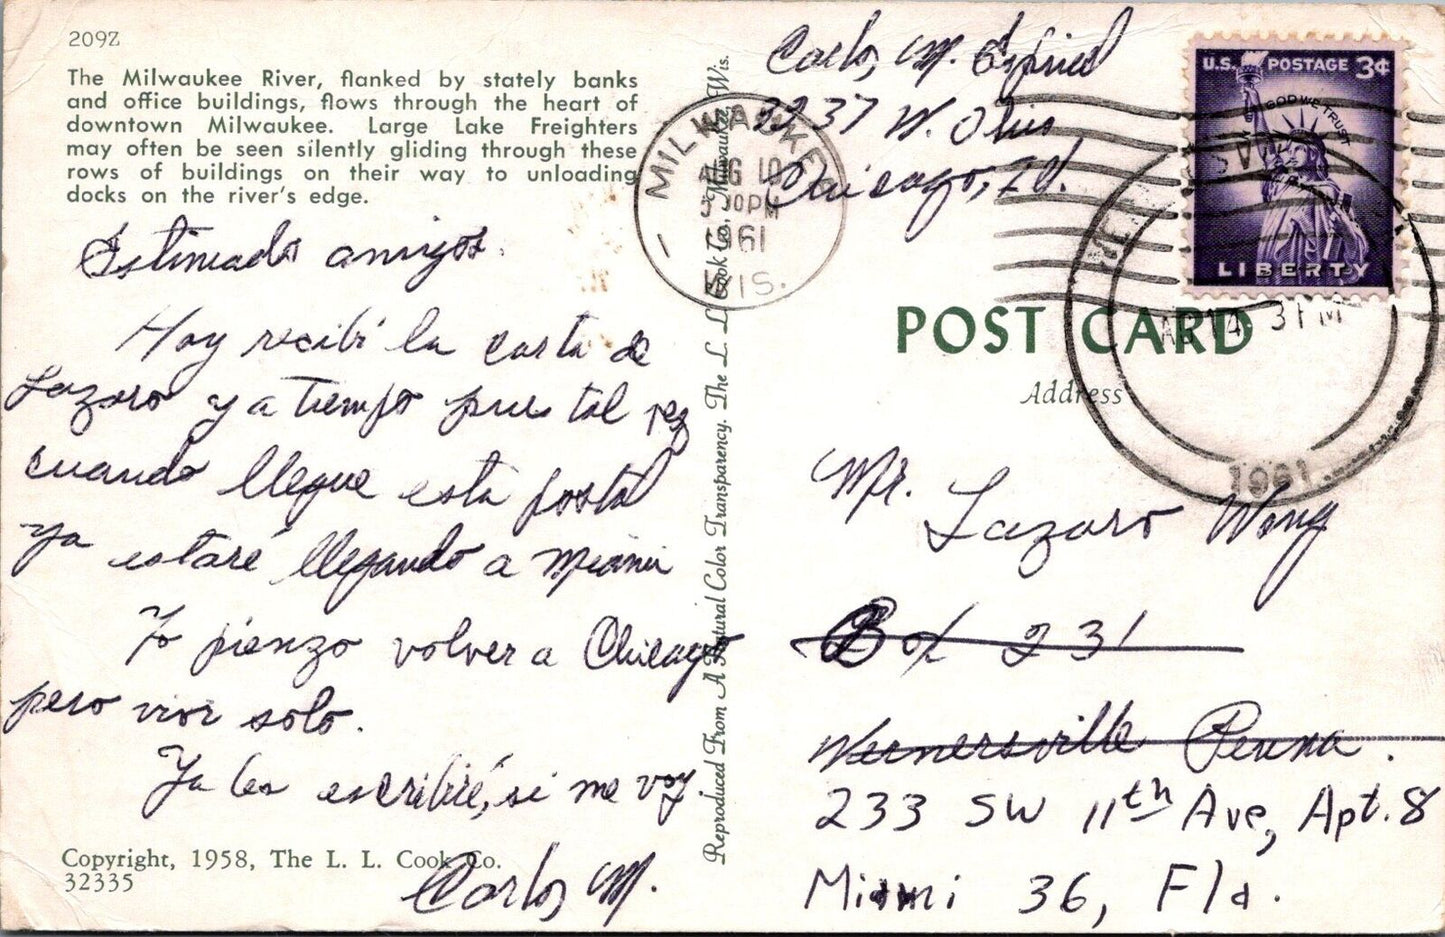 209Z
The Milwaukee River, flanked by stately banks
and office buildings, flows through the heart of
downtown Milwaukee. Large Lake Freighters
may often be seen silently gliding through these
rows of buildings on their way to unloading
docks on the river's edge.
Estimados amigos.
Hoy recibí la carta de
Lazaro y a tiempo pues tal vez
cuando llegue esta postal
ya estaré llegando a Miami
Yo pienzo volver a Chicago
pero vivir solo.
Ya les escribiré, si me voy.
Carlos M.
Copyright, 1958, The L. L. Cook Co.
32335
Reproduced From A Natural Color Transparency. The L. L. Cook Co., Milwaukee, Wis.
Carlos M.
2237 W. Ohio
Chicago, Ill.
MILWAUKEE
AUG 10
PM
1961
WIS.
U.S. POSTAGE 3¢
IN GOD WE TRUST
LIBERTY
POST CARD
14 3 PM
1961.
Address
Mr. Lazaro Wong
Box 231
Wernersville Penna.
233 SW 11th Ave, Apt. 8
Miami 36, Fla.